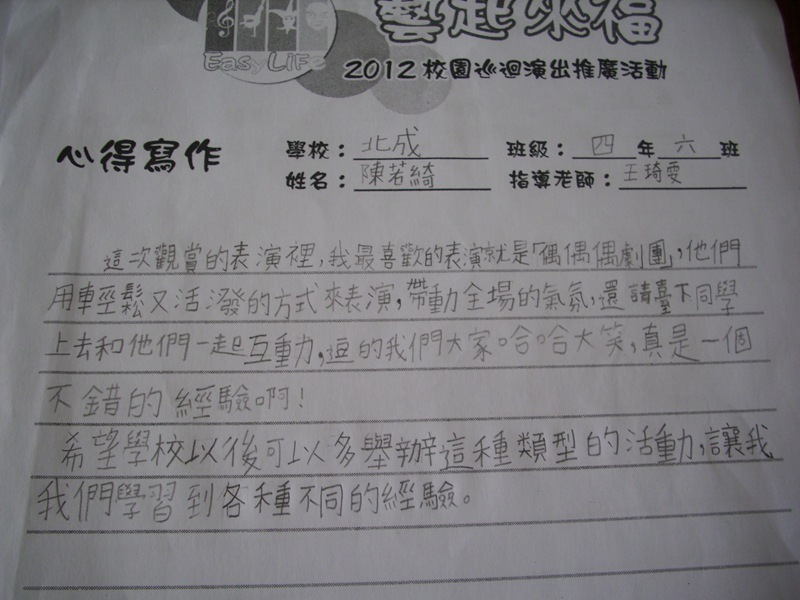 藝起來福
EasyLiFe
2012校園巡迴演出推廣活動
心得寫作 學校：北成 班級：四年六班
姓名：陳若綺 指導老師：王琦雯
這次觀賞的表演裡,我最喜歡的表演就是「偶偶偶劇團」,他們
用輕鬆又活潑的方式來表演,帶動全場的氣氛,還請臺下同學
上去和他們一起互動力,逗的我們大家哈哈大笑,真是一個
不錯的經驗啊!
希望學校以後可以多舉辦這種類型的活動,讓我
我們學習到各種不同的經驗。